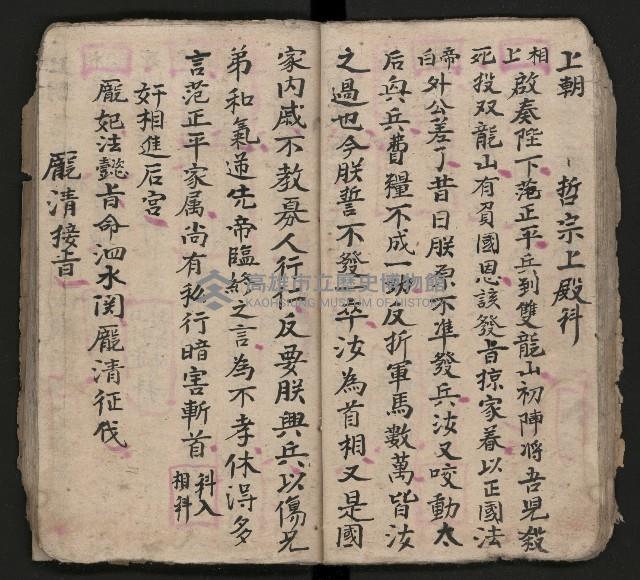 上朝　哲宗上殿科
相上啟奏陛下范正平兵到雙龍山初陣將吾児殺
死投双龍山有負國恩該發旨掠家眷以正國法
帝白外公差了昔日朕原不準發兵汝又咬動太
后興兵費糧不成一功反折軍馬數萬皆汝
之過也今朕誓不發卒汝為首相又是國
家内戚不教寡人行反要朕興兵以傷兄
弟和氣逆先帝臨終之言為不孝休得多
言范正平家属尚有私行暗害斬首 科入相科
奸相進后宫
龐妃法懿旨命泗水関龐清征伐
龐清接旨
高雄市立歷史博物館
KAOHSIUNG MUSEUM OF HISTORY